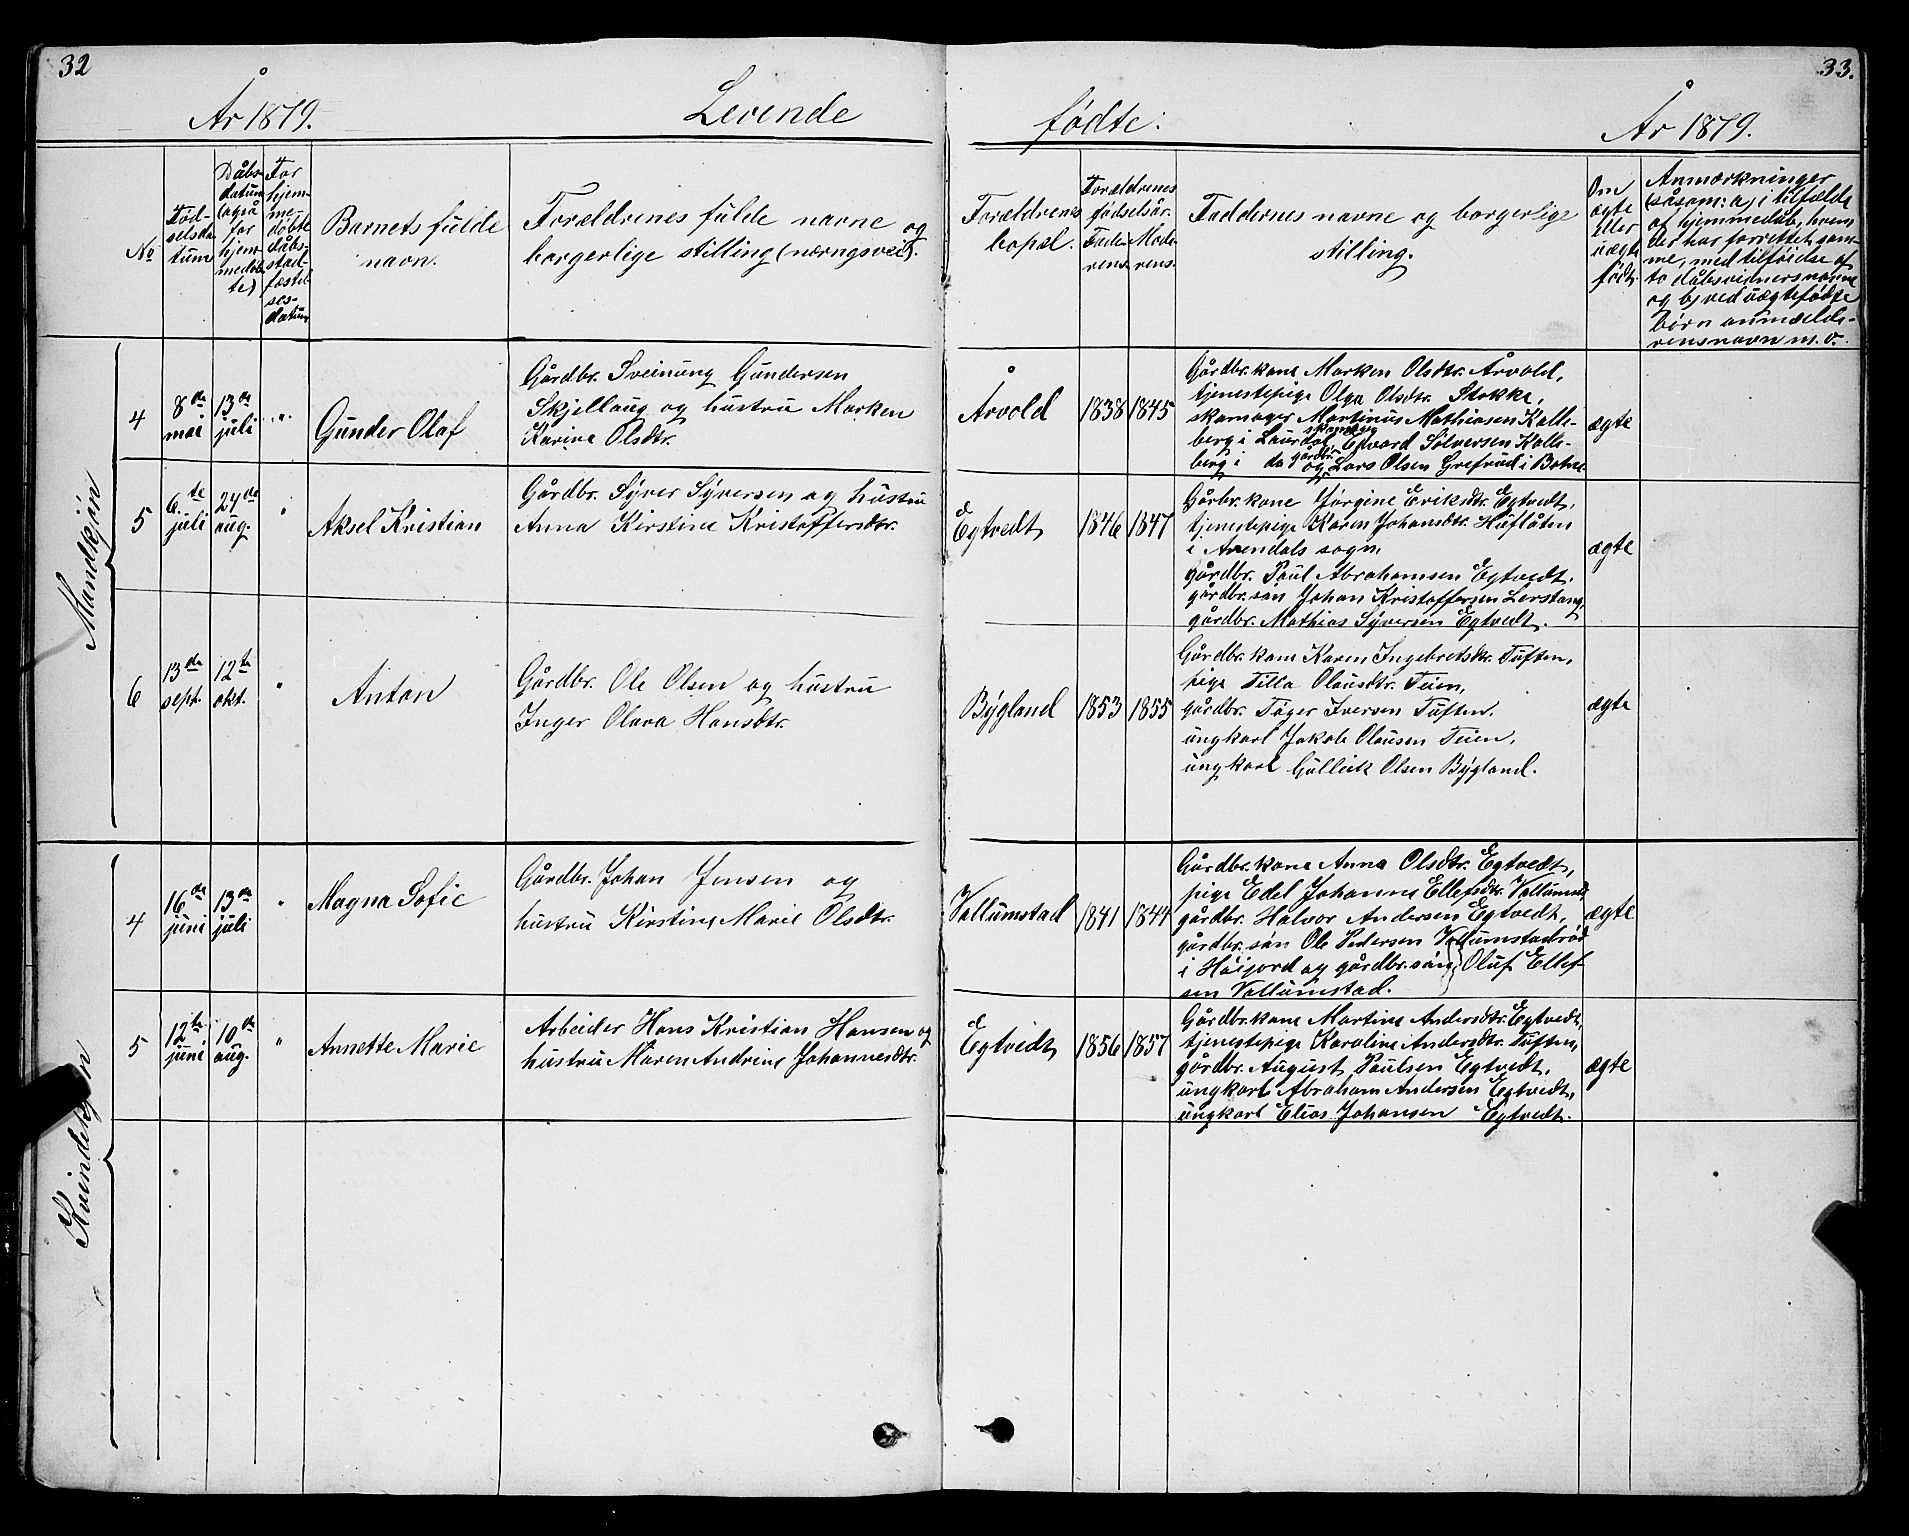 32
33.
År 1879.
Levende
fødte:
År 1879.
No
Fød-
selsda-
tum
Dåbs-
datum
(også
for
hjem-
medøb-
te)
For
hjem-
me-
døbte
dåbs-
stad-
fæstel-
ses-
datum
Barnets fulde
navn.
Forældrenes fulde navne og
borgerlige stilling (nærngsvei).
Forældrenes
bopæl.
Forældrenes
fødselsår.
Fade-
rens.
Mode-
rens.
Faddernes navne og borgerlige
stilling.
Om
ægte
eller
uægte
født.
Anmærkninger
(såsom: a) i tilfælde
af hjemmedåb, hvem
der har forrettet sam-
me, med tilføidse af
to dåbsvidners navne
og b) ved uægtefødte
børn anmelde-
rens navn m.v.
Mandkjøn
4
8de
mai
13de
juli
"
Gunder Olaf
Gårdbr. Sveinung Gundersen
Skjellaug og hustru Marken
Karine Olsdtr.
Årvold
1838
1845
Gårdbr. kone Marken Olsdtr. Årvold,
tjenestepige Olga Olsdtr. Stokke,
skomager Martinus Mathiasen Kalle-
berg i Laurdal, skomager Edvard Sølversen Kalle-
berg i do og gårdbr. Lars Olsen Grefrud i Botne
ægte
5
6te
juli
24de
aug.
"
Aksel Kristian
Gårdbr. Syver Syversen og hustru
Anna Kirstine Kristoffersdtr.
Egtvedt
1846
1847
Gårbr. kone Jørgine Eriksdtr. Egtvedt,
tjenestepige Karen Johansdtr. Huflåten
i Arendals sogn,
gårdbr. Paul Abrahamsen Egtvedt,
gårdbr. søn Johan Kristoffersen Lerstang,
gårdbr. Mathias Syversen Egtvedt.
ægte
6
13de
sept.
12te
okt.
"
Anton
Gårdbr. Ole Olsen og hustru
Inger Olava Hansdtr.
Bygland
1853
1855
Gårdbr. kone Karen Ingebretsdtr. Tuften,
pige Tilla Olausdtr. Teien,
gårdbr. Tøger Iversen Tuften,
ungkarl Jakob Olausen Teien,
ungkarl Gullik Olsen Bygland.
ægte
Kvindekjøn
4
16de
juni
13de
juli
"
Magna Sofie
Gårdbr. Johan Jensen og
hustru Kirstine Marie Olsdtr.
Vallumstad
1841
1844
Gårdbr. kone Anna Olsdtr. Egtvedt,
pige Edel Johanne Ellefsdtr. Vallumst.
gårdbr. Halvor Andersen Egtvedt,
gårdbr. søn Ole Pedersen Vallumstadrød
i Høijord og gårdbr. søn Oluf Ellef-
sen Vallumstad.
ægte
5
12te
juni
10de
aug.
"
Annette Marie
Arbeider Hans Kristian Hansen og
hustru Maren Andrine Johannesdtr.
Egtvedt
1856
1857
Gårdbr. kone Martine Andersdtr. Egtvedt,
tjenestepige Karoline Andersdtr. Tuften,
gårdbr. August Paulsen Egtvedt,
ungkarl Abraham Andersen Egtvedt,
ungkarl Elias Johansen Egtvedt.
ægte